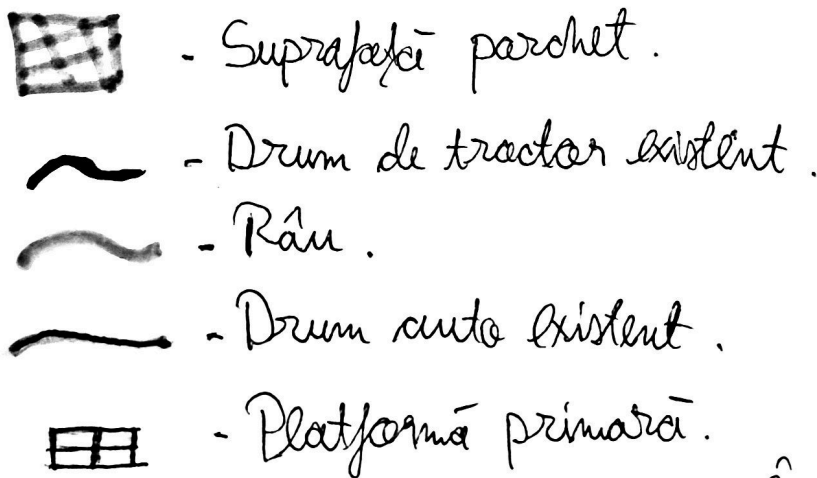 - Suprafață parchet.
- Drum de tractor existent.
- Râu.
- Drum auto existent.
- Platformă primară.